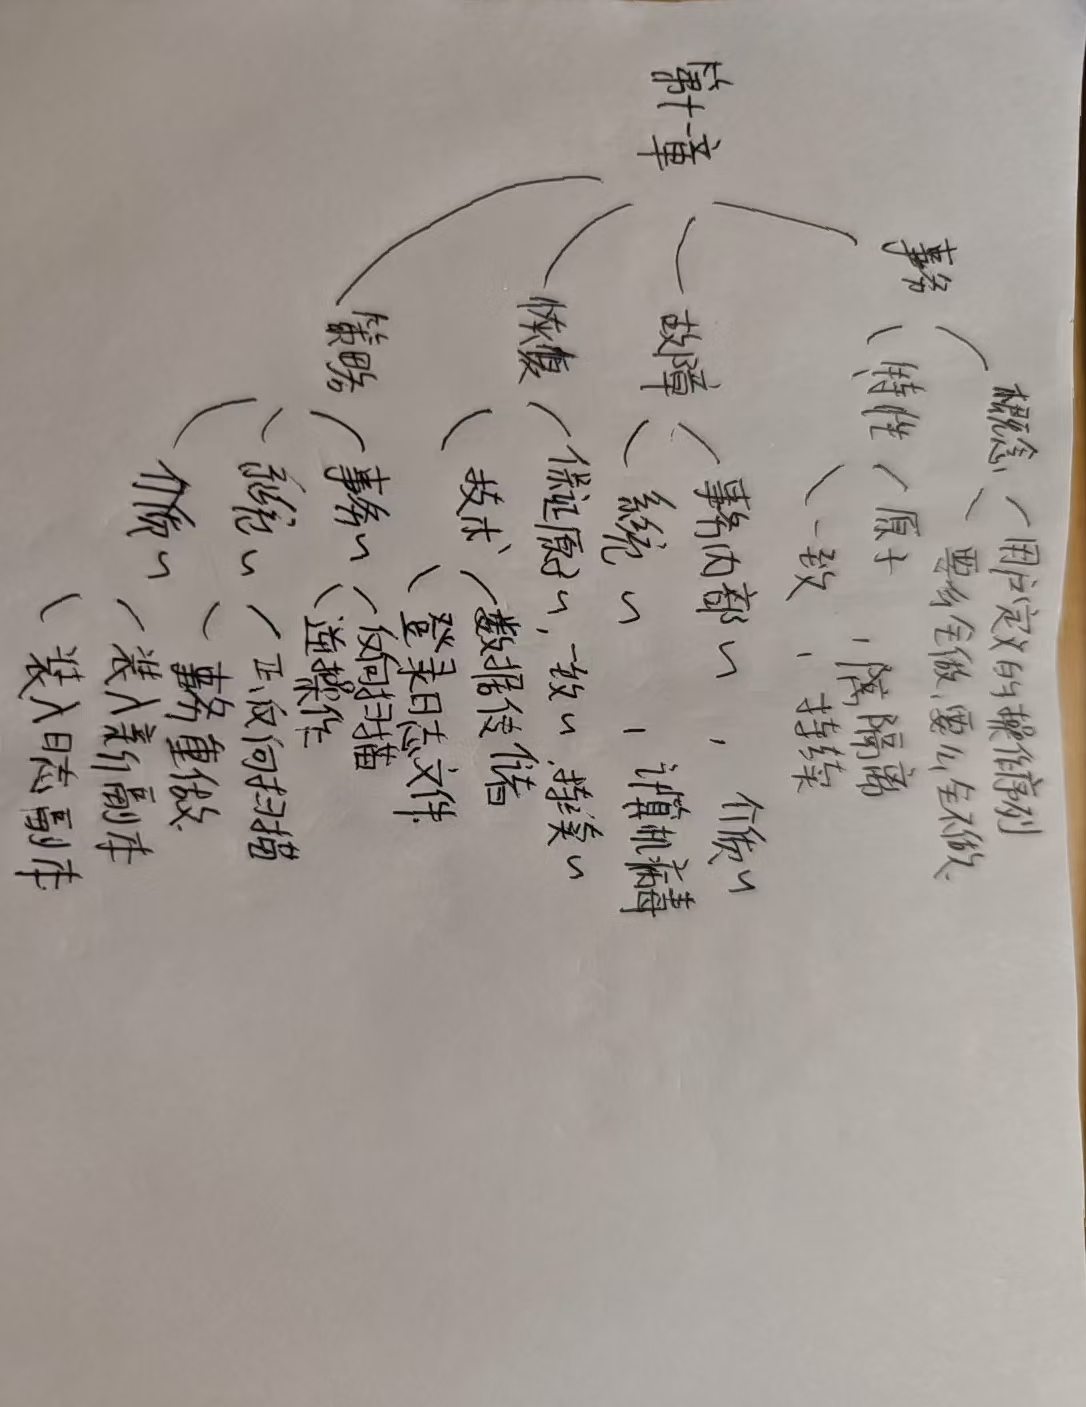 第十一章
事务
概念
用户定义的操作序列
要么全做,要么全不做.
特性
原子,隔离
一致,持续
故障
事务内部~,介质~
系统~,计算机病毒
恢复
保证原子~,一致~,持续~
技术
数据传储
登录日志文件.
策略
事务~
反向扫描
逆操作
系统~
正、反向扫描
事务重做.
介质~
装入新副本
装入日志副本.